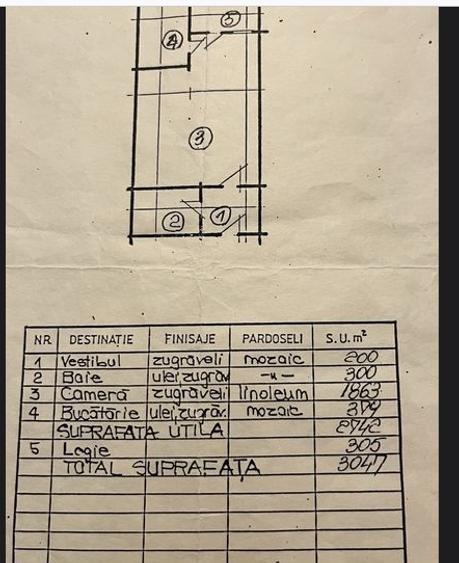 5
4
3
2 1
NR DESTINAȚIE FINISAJE PARDOSELI S.U. m²
1 Vestibul zugrăveli mozaic 200
2 Baie ulei,zugrăv -"- 300
3 Cameră zugrăveli linoleum 1863
4 Bucătărie ulei,zugrăv. mozaic 379
SUPRAFAȚA UTILA 2742
5 Logie 305
TOTAL SUPRAFAȚA 3047